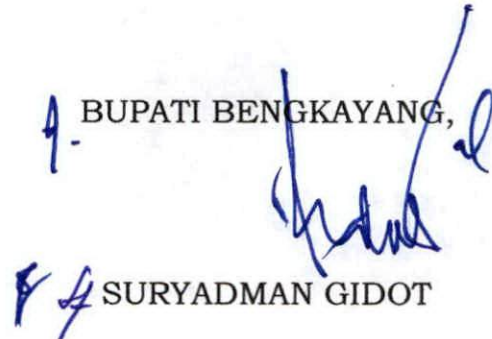 BUPATI BENGKAYANG,
SURYADMAN GIDOT